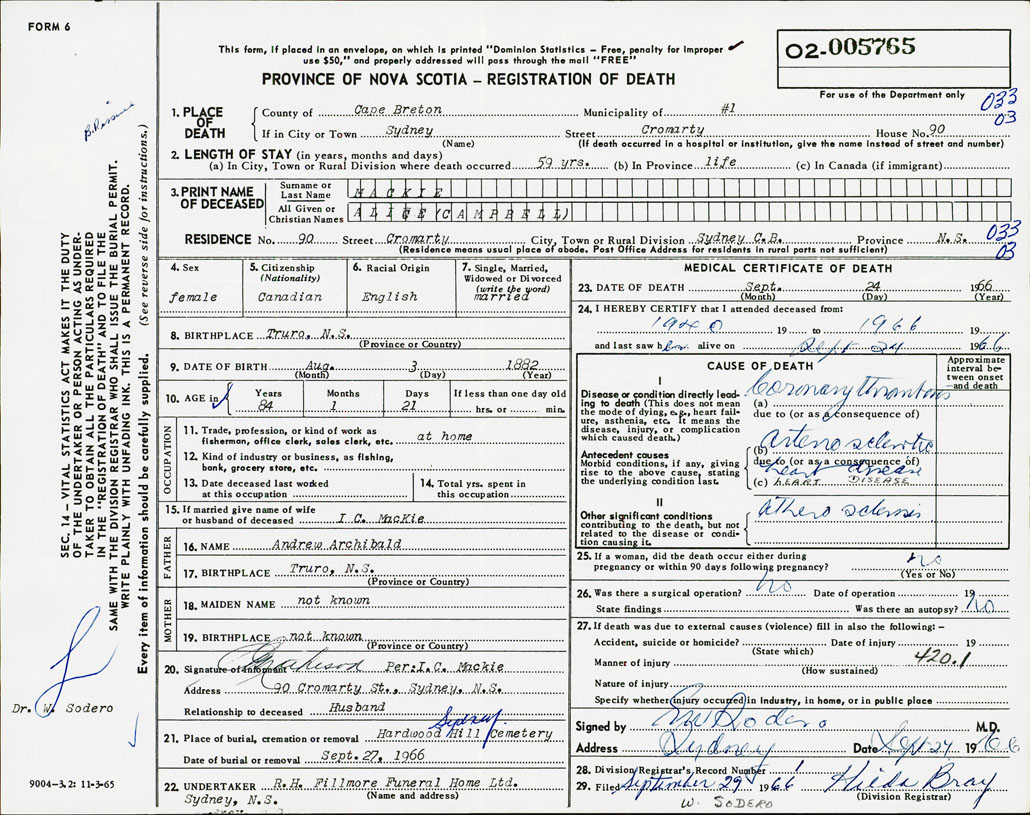 FORM 6
This form, if placed in an envelope, on which is printed "Dominion Statistics – Free, penalty for improper
use $50," and properly addressed will pass through the mail "FREE"
02-005765
For use of the Department only
PROVINCE OF NOVA SCOTIA – REGISTRATION OF DEATH
033
03
1. PLACE OF DEATH
County of Cape Breton Municipality of #1
If in City or Town Sydney Street Cromarty House No. 90
(Name) (If death occurred in a hospital or institution, give the name instead of street and number)
2. LENGTH OF STAY (in years, months and days)
(a) In City, Town or Rural Division where death occurred 59 yrs. (b) In Province life (c) In Canada (if immigrant)
3. PRINT NAME OF DECEASED
Surname or Last Name MACKIE
All Given or Christian Names ALICE (CAMPBELL)
RESIDENCE No. 90 Street Cromarty City, Town or Rural Division Sydney C.B. Province N.S.
(Residence means usual place of abode. Post Office Address for residents in rural parts not sufficient)
033
03
4. Sex female
5. Citizenship (Nationality) Canadian
6. Racial Origin English
7. Single, Married, Widowed or Divorced (write the word) married
8. BIRTHPLACE Truro, N.S.
(Province or Country)
9. DATE OF BIRTH Aug. 3 1882
(Month) (Day) (Year)
10. AGE in Years 84 Months 1 Days 21 If less than one day old hrs. or min.
OCCUPATION
11. Trade, profession, or kind of work as fisherman, office clerk, sales clerk, etc. at home
12. Kind of industry or business, as fishing, bank, grocery store, etc.
13. Date deceased last worked at this occupation
14. Total yrs. spent in this occupation
15. If married give name of wife or husband of deceased I.C. MacKie
FATHER
16. NAME Andrew Archibald
17. BIRTHPLACE Truro, N.S.
(Province or Country)
MOTHER
18. MAIDEN NAME not known
19. BIRTHPLACE not known
(Province or Country)
20. Signature of Informant Per: I.C. Mackie
Address 90 Cromarty St., Sydney, N.S.
Relationship to deceased Husband
21. Place of burial, cremation or removal Hardwood Hill Cemetery
Sydney
Date of burial or removal Sept. 27, 1966
22. UNDERTAKER R.H. Fillmore Funeral Home Ltd.
Sydney, N.S. (Name and address)
MEDICAL CERTIFICATE OF DEATH
23. DATE OF DEATH Sept. 24 1966
(Month) (Day) (Year)
24. I HEREBY CERTIFY that I attended deceased from:
1940 19 to 1966 19
and last saw her alive on Sept 24 1966
CAUSE OF DEATH
Approximate interval between onset and death
I
Disease or condition directly leading to death (This does not mean the mode of dying, e.g., heart failure, asthenia, etc. It means the disease, injury, or complication which caused death.)
(a) Coronary thrombosis
due to (or as a consequence of)
Antecedent causes
Morbid conditions, if any, giving rise to the above cause, stating the underlying condition last.
(b) arterio sclerotic
due to (or as a consequence of)
heart disease
(c) HEART DISEASE
II
Other significant conditions contributing to the death, but not related to the disease or condition causing it.
Athero sclerosis
25. If a woman, did the death occur either during pregnancy or within 90 days following pregnancy? no
(Yes or No)
26. Was there a surgical operation? no Date of operation 19
State findings Was there an autopsy? no
27. If death was due to external causes (violence) fill in also the following: –
Accident, suicide or homicide? Date of injury 19
(State which)
Manner of injury 420.1
(How sustained)
Nature of injury
Specify whether injury occurred in industry, in home, or in public place
Signed by Sodero M.D.
Address Sydney Date Sept 24 1966
28. Division Registrar's Record Number
29. Filed September 29 1966 Hilda Bray
(Division Registrar)
W. SODERO
SEC. 14 – VITAL STATISTICS ACT MAKES IT THE DUTY
OF THE UNDERTAKER OR PERSON ACTING AS UNDER-
TAKER TO OBTAIN ALL THE PARTICULARS REQUIRED
IN THE "REGISTRATION OF DEATH" AND TO FILE THE
SAME WITH THE DIVISION REGISTRAR WHO SHALL ISSUE THE BURIAL PERMIT.
WRITE PLAINLY WITH UNFADING INK. THIS IS A PERMANENT RECORD.
Every item of information should be carefully supplied. (See reverse side for instructions.)
Dr. W. Sodero
9004–3.2: 11-3-65